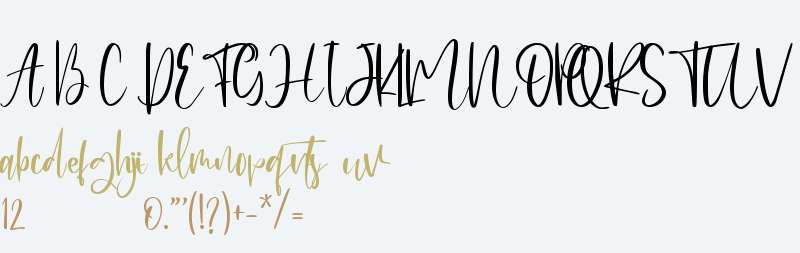 A B C D E F G H I J K L M N O P Q R S T U V
abcdefghij klmnopqrts uv
12 0."'(!?)+-*/=